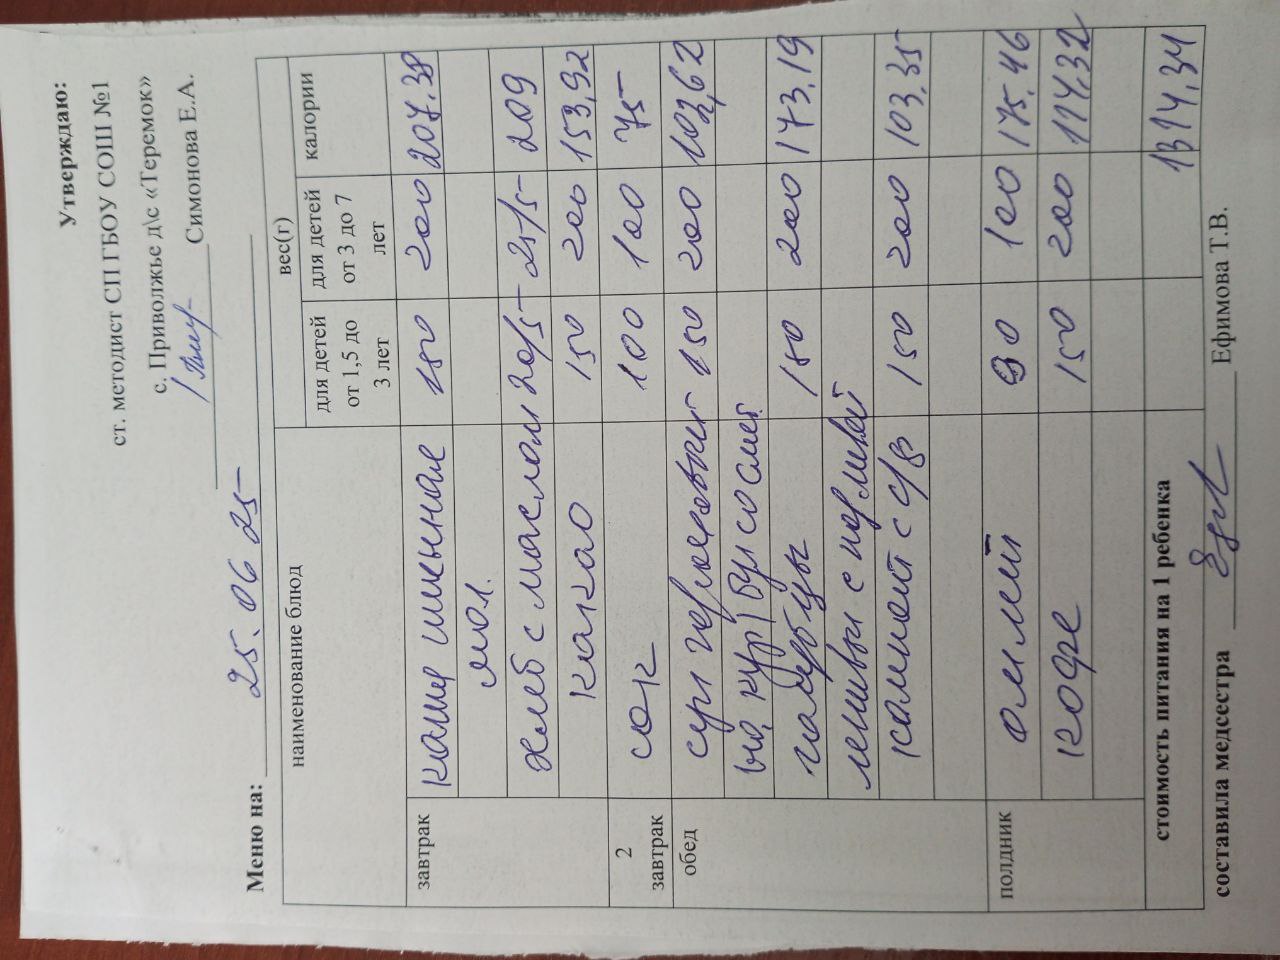 Утверждаю:
ст. методист СП ГБОУ СОШ №1
с. Приволжье д\с «Теремок»
Симонова Е.А.
Меню на: 25. 06 25
наименование блюд вес(г) калории
для детей от 1,5 до 3 лет для детей от 3 до 7 лет
завтрак каша пшенная 180 200 207.38
мол.
хлеб с маслом 20/5 25/5 209
какао 150 200 153,92
2 завтрак сок 100 100 75
обед суп 150 200 102,62
голубцы 180 200 173.19
ленивы с
компот с с/ф 150 200 103.35
полдник омлет 90 100 175.46
кофе 150 200 114,32
стоимость питания на 1 ребенка 1314,34
составила медсестра Ефимова Т.В.